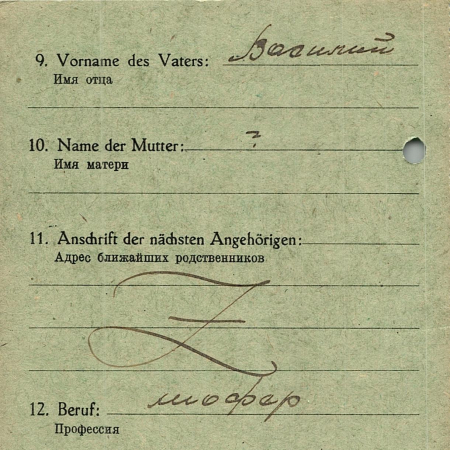 9. Vorname des Vaters: Василий
Имя отца
10. Name der Mutter: ?
Имя матери
11. Anschrift der nächsten Angehörigen:
Адрес ближайших родственников
Z
12. Beruf: шофер
Профессия